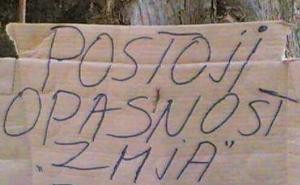 POSTOJI
OPASNOST
"ZMJA"